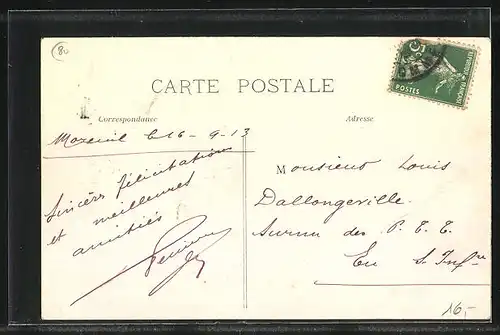 80
CARTE POSTALE
Correspondance
Adresse
5c
POSTES
Moreuil le 16-9-13
Sincères félicitations
et meilleures
amitiés
Monsieur Louis
Dallongeville
des P. T. T.
Eu S. Infre
16,-